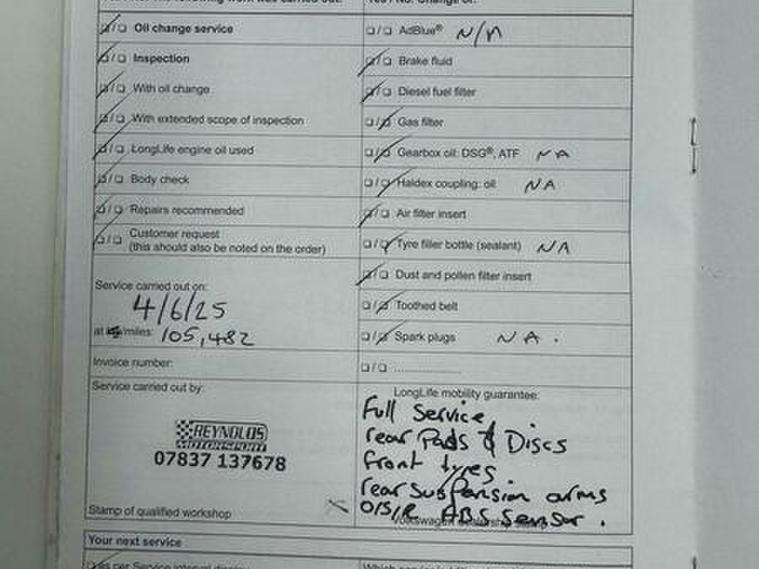 ☑/☐ Oil change service
☑/☐ Inspection
☑/☐ With oil change
☑/☐ With extended scope of inspection
☑/☐ LongLife engine oil used
☑/☐ Body check
☑/☐ Repairs recommended
☑/☐ Customer request
(this should also be noted on the order)
Service carried out on:
4/6/25
at /miles: 105,482
Invoice number:
Service carried out by:
REYNOLDS
MOTORSPORT
07837 137678
Stamp of qualified workshop
☐/☐ AdBlue® N/A
☑/☐ Brake fluid
☑/☐ Diesel fuel filter
☐/☑ Gas filter
☐/☑ Gearbox oil: DSG®, ATF NA
☐/☑ Haldex coupling: oil NA
☑/☐ Air filter insert
☐/☑ Tyre filler bottle (sealant) NA
☑/☐ Dust and pollen filter insert
☐/☑ Toothed belt
☐/☑ Spark plugs NA.
☐/☐ ....................
LongLife mobility guarantee:
Full Service,
rear Pads & Discs
front tyres.
rear suspension arms
O/S/R ABS Sensor.
Your next service